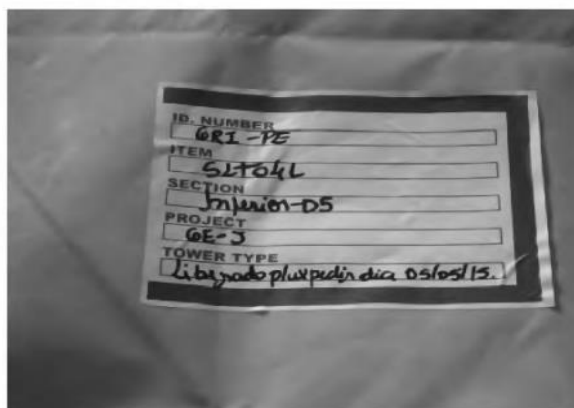 ID. NUMBER
GRI-PE
ITEM
SLT04L
SECTION
Inferior-D5
PROJECT
GE-J
TOWER TYPE
Liberado p/ expedir dia 05/05/15.